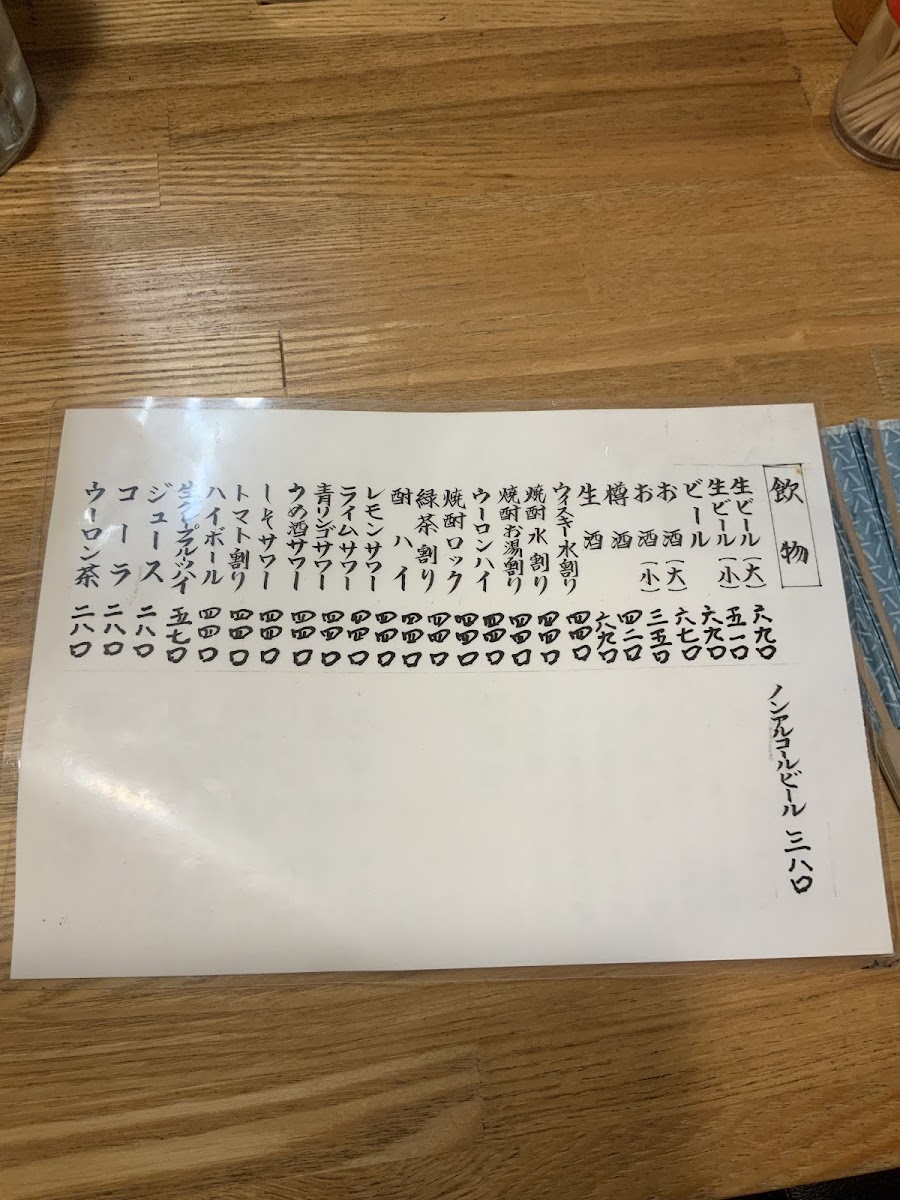 飲物
生ビール(大) 六九〇
生ビール(小) 五一〇
ビール 六九〇
お酒(大) 六七〇
お酒(小) 三五〇
樽酒 四二〇
生酒 六九〇
ウイスキー水割り 四四〇
焼酎水割り 四四〇
焼酎お湯割り 四四〇
ウーロンハイ 四四〇
焼酎ロック 四四〇
緑茶割り 四四〇
酎ハイ 四四〇
レモンサワー 四四〇
ライムサワー 四四〇
青リンゴサワー 四四〇
うめ酒サワー 四四〇
しそサワー 四四〇
トマト割り 四四〇
ハイボール 四四〇
生グレープフルーツハイ 五七〇
ジュース 二八〇
コーラ 二八〇
ウーロン茶 二八〇
ノンアルコールビール 三八〇